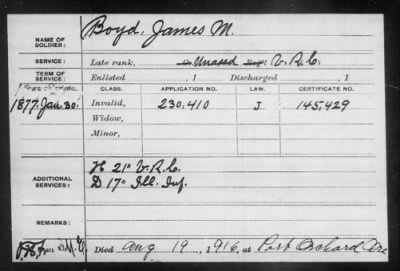 NAME OF SOLDIER: Boyd, James M.
SERVICE: Late rank, Unassd V.R.C.
TERM OF SERVICE: Enlisted , 1 Discharged , 1
CLASS. APPLICATION NO. LAW. CERTIFICATE NO.
1877. Jan. 30. Invalid, 230,410 J 145,429
Widow,
Minor,
ADDITIONAL SERVICES: H 21" V.R.C.
D 17" Ill. Inf.
REMARKS:
Died Aug 19, 1916, at Port Orchard